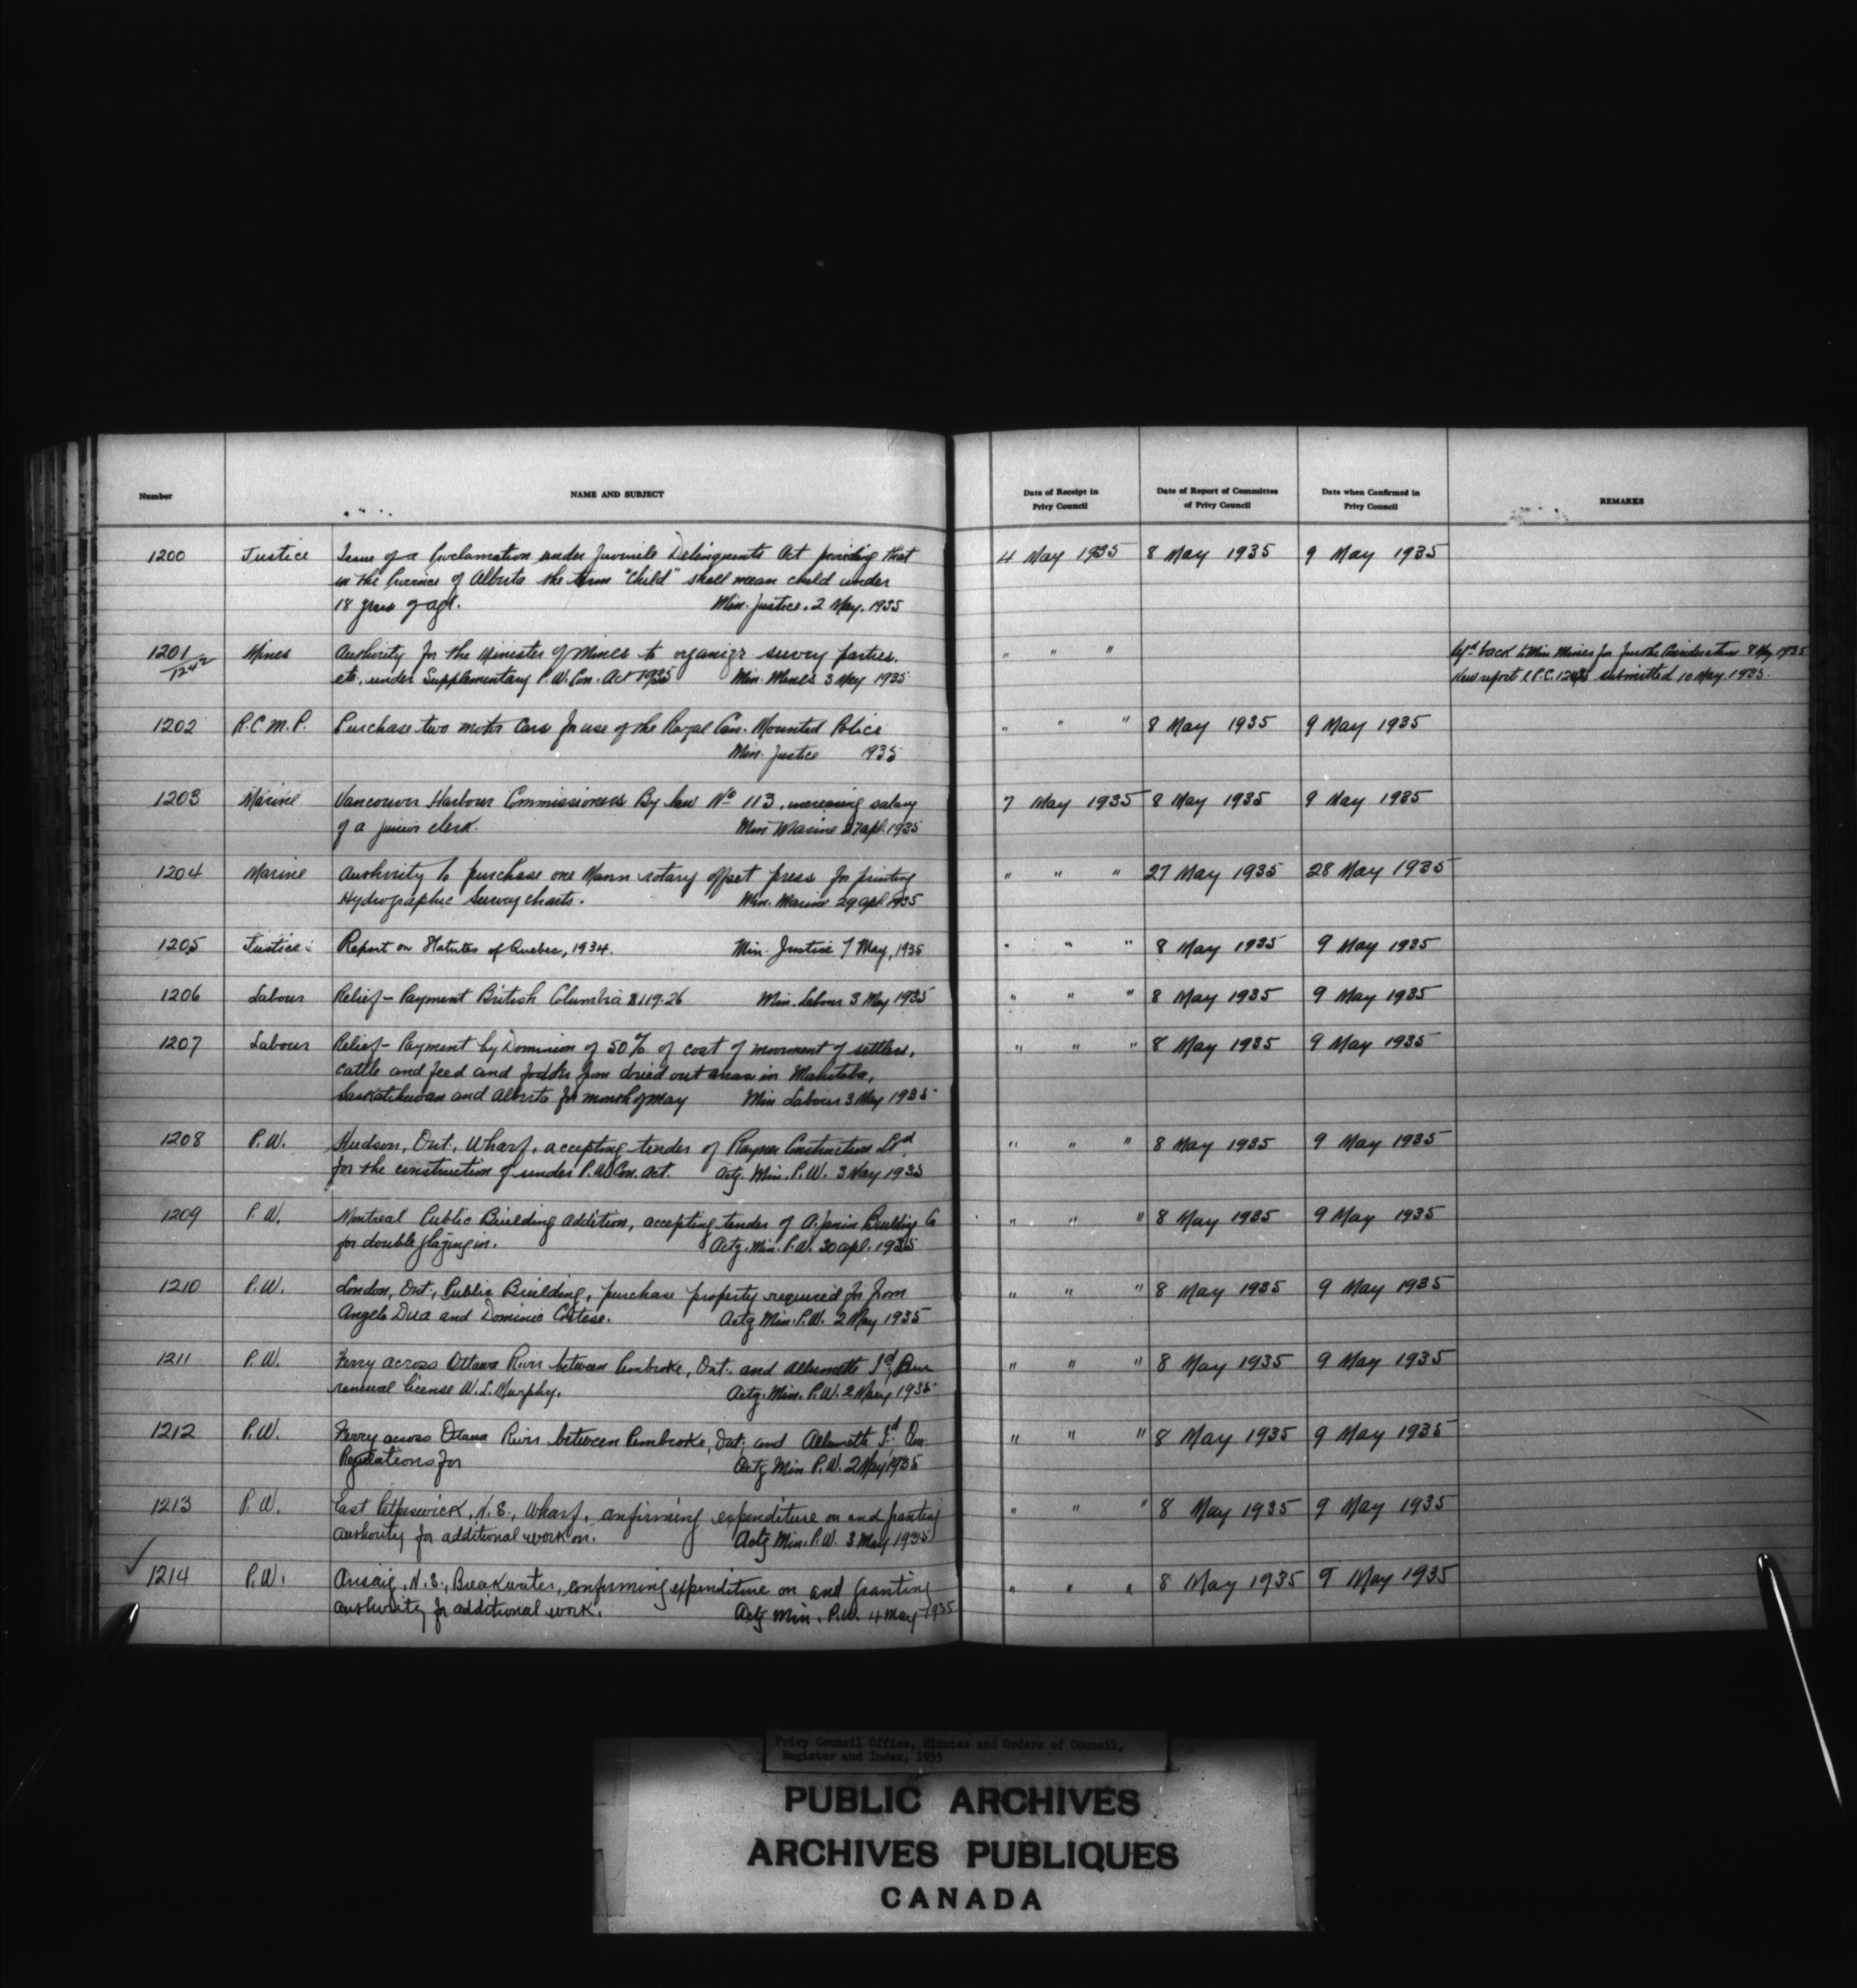 Number
NAME AND SUBJECT
Date of Receipt in Privy Council
Date of Report of Committee of Privy Council
Date when Confirmed in Privy Council
REMARKS
1200 Justice Issue of a Proclamation under Juvenile Delinquents Act providing that 4 May 1935 8 May 1935 9 May 1935
in the Province of Alberta the term "child" shall mean child under
18 years of age. Min. Justice. 2 May. 1935
1201 Mines Authority for the Minister of Mines to organize survey parties, " " " back to Min Mines for further Consideration 8 May 1935
etc. under Supplementary P.W. Con. Act 1935 Min. Mines 3 May 1935 New report submitted 10 May 1935.
1202 R.C.M.P. Purchase two motor cars for use of the Royal Can. Mounted Police " " " 8 May 1935 9 May 1935
Min. Justice 1935
1203 Marine Vancouver Harbour Commissioners By law No 113, increasing salary 7 May 1935 8 May 1935 9 May 1935
of a junior clerk. Min Marine 27 apl. 1935
1204 Marine Authority to purchase one Mann rotary offset press for printing " " " 27 May 1935 28 May 1935
Hydrographic Survey charts. Min. Marine 29 apl 1935
1205 Justice Report on Statutes of Quebec, 1934. Min. Justice 7 May, 1935 " " " 8 May 1935 9 May 1935
1206 Labour Relief - Payment British Columbia $119.26 Min. Labour 3 May 1935 " " " 8 May 1935 9 May 1935
1207 Labour Relief - Payment by Dominion of 50% of cost of movement of settlers, " " " 8 May 1935 9 May 1935
cattle and feed and fodder from dried out areas in Manitoba,
Saskatchewan and Alberta for month of May Min Labour 3 May 1935
1208 P.W. Hudson, Ont., Wharf, accepting tender of Rayner Construction Ltd. " " " 8 May 1935 9 May 1935
for the construction of under P.W. Con. Act. Actg. Min. P.W. 3 May 1935
1209 P.W. Montreal Public Building addition, accepting tender of A. Janin Building Co " " " 8 May 1935 9 May 1935
for double glazing in. Actg. Min. P.W. 30 apl. 1935
1210 P.W. London, Ont., Public Building, purchase property required for from " " " 8 May 1935 9 May 1935
Angelo Dua and Dominic Cortese. Actg Min. P.W. 2 May 1935
1211 P.W. Ferry across Ottawa River between Pembroke, Ont. and Allumette Id, Que " " " 8 May 1935 9 May 1935
renewal license W.L. Murphy. Actg. Min. P.W. 2 May 1935
1212 P.W. Ferry across Ottawa River between Pembroke, Ont. and Allumette Id. Que. " " " 8 May 1935 9 May 1935
Regulations for Actg Min P.W. 2 May 1935
1213 P.W. East Petpeswick, N.S., Wharf, confirming expenditure on and granting " " " 8 May 1935 9 May 1935
authority for additional work on. Actg Min. P.W. 3 May 1935
1214 P.W. Arisaig, N.S., Breakwater, confirming expenditure on and granting " " " 8 May 1935 9 May 1935
authority for additional work. Actg Min. P.W. 4 May 1935
Privy Council Office, Minutes and Orders of Council,
Register and Index, 1935
PUBLIC ARCHIVES
ARCHIVES PUBLIQUES
CANADA